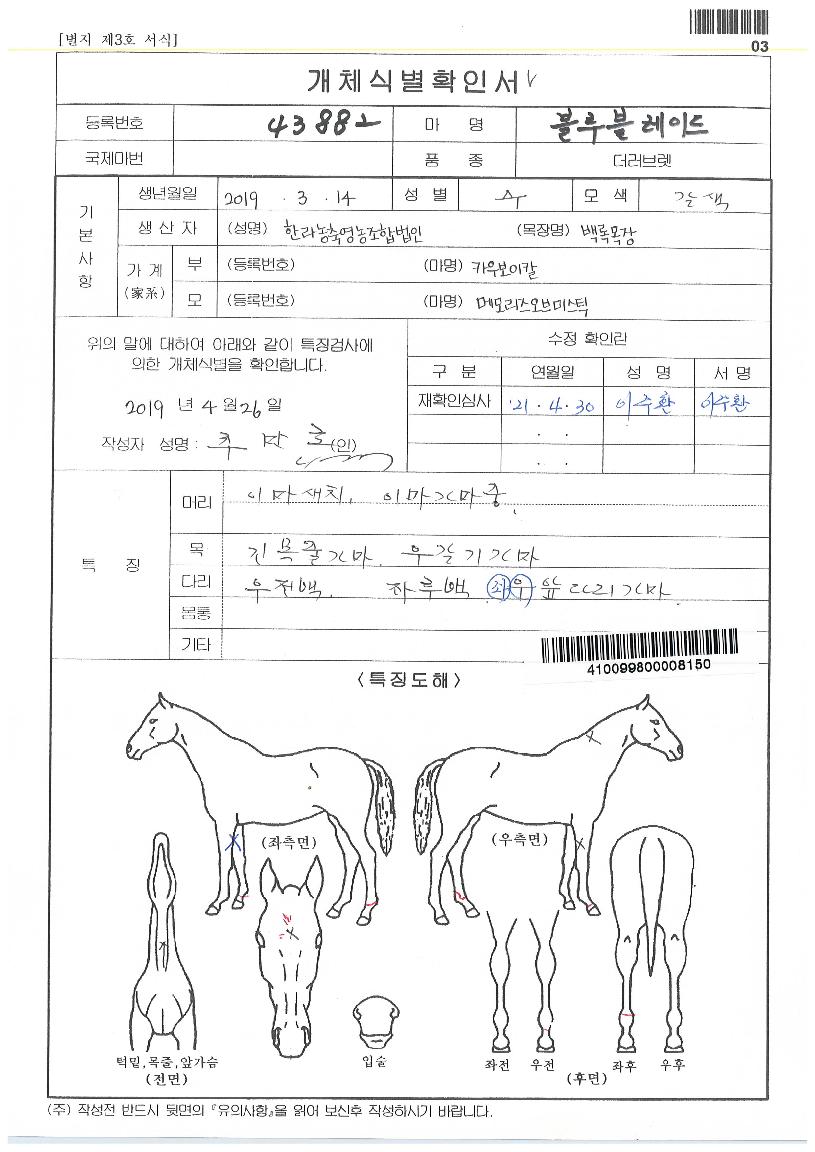 [별지 제3호 서식]
03
개체식별확인서
등록번호 43882 마 명 블루블레이드
국제마번 품 종 더러브렛
기본사항
생년월일 2019 . 3 . 14 성 별 수 모 색 갈색
생 산 자 (성명) 한라농축영농조합법인 (목장명) 백록목장
가 계 (家系) 부 (등록번호) (마명) 카우보이칼
모 (등록번호) (마명) 메모리즈오브미스틱
위의 말에 대하여 아래와 같이 특징검사에
의한 개체식별을 확인합니다.
2019 년 4 월 26 일
작성자 성명 : (인)
수정 확인란
구 분 연월일 성 명 서 명
재확인심사 '21 . 4 . 30 이수환 이수환
. .
. .
특 징
머리 이마새치, 이마가마중
목 진목줄가마. 우갈기가마
다리 우전백. 좌후백 좌우앞다리가마
몸통
기타
410099800008150
<특징도해>
(좌측면) (우측면)
턱밑,목줄,앞가슴
(전면)
입술
좌전 우전 좌후 우후
(후면)
(주) 작성전 반드시 뒷면의 『유의사항』을 읽어 보신후 작성하시기 바랍니다.